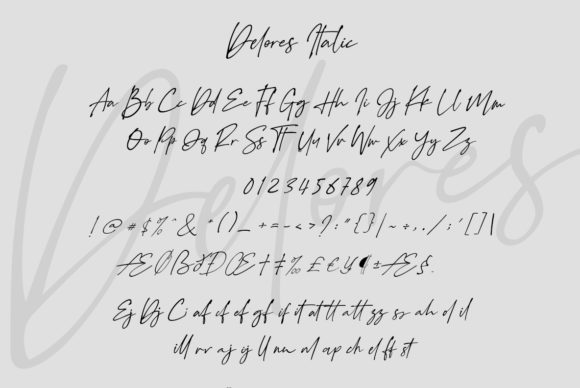 Delores Italic
Aa Bb Cc Dd Ee Ff Gg Hh Ii Jj Kk Ll Mm
Oo Pp Qq Rr Ss Tt Uu Vv Ww Xx Yy Zz
0123456789
!@#$%^&*()_+=-<>?:"{}|~+,./;'[]\
ÆØBƌÐŒ†‡‰£€¥¶±Æ§.
Ej Dj Ci af cf ef gf if it at tt att zz sz ah d il
ill rr aj ij ll nn al ap ch el ff st
Delores